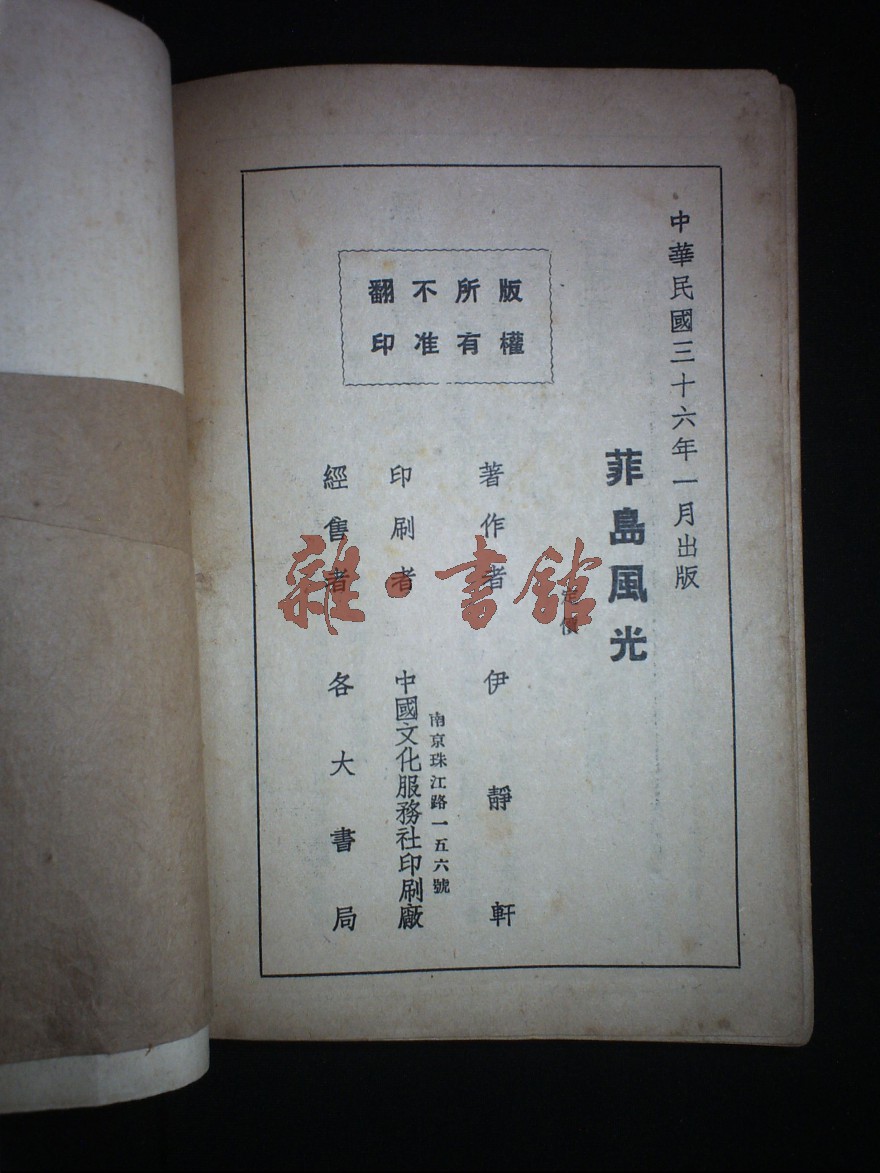 中華民國三十六年一月出版
菲島風光
定價
版權
所有
不准
翻印
著作者 伊靜軒
南京珠江路一五六號
印刷者 中國文化服務社印刷廠
經售者 各大書局
雜·書館